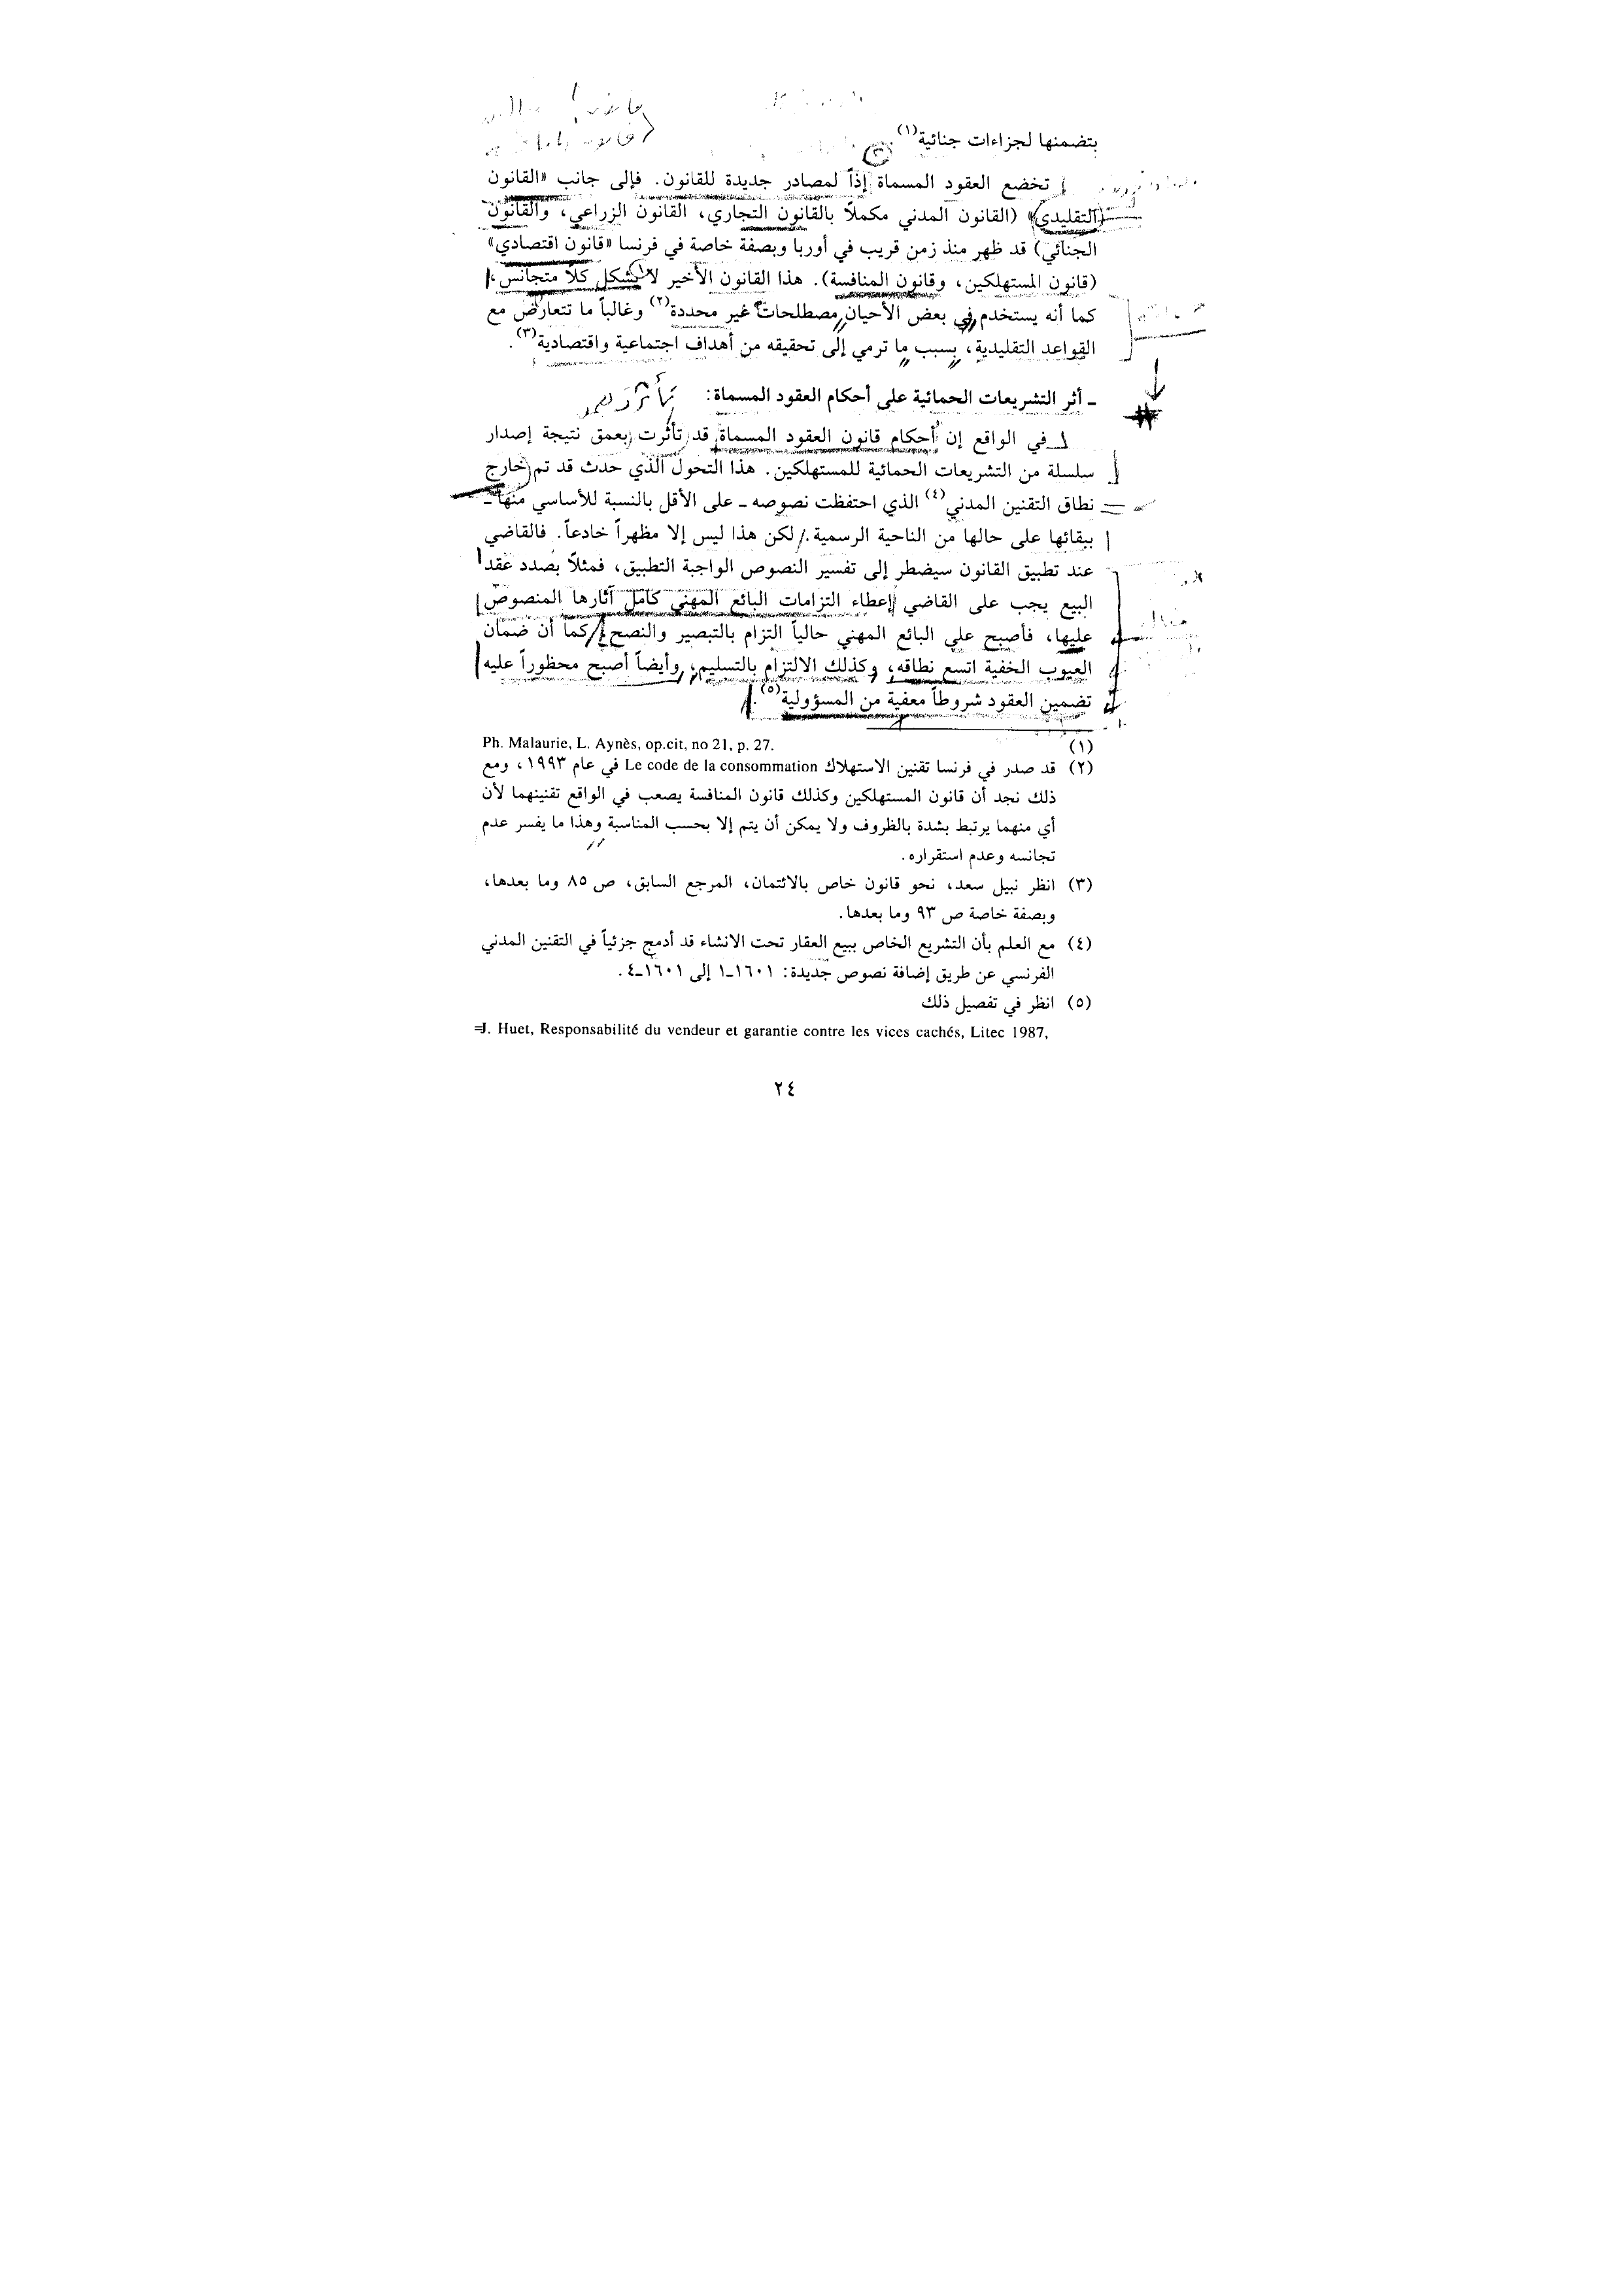 بتضمنها لجزاءات جنائية(١).
تخضع العقود المسماة إذاً لمصادر جديدة للقانون. فإلى جانب «القانون
التقليدي» (القانون المدني مكملاً بالقانون التجاري، القانون الزراعي، والقانون
الجنائي) قد ظهر منذ زمن قريب في أوربا وبصفة خاصة في فرنسا «قانون اقتصادي»
(قانون المستهلكين، وقانون المنافسة). هذا القانون الأخير لا يشكل كلاً متجانس،
كما أنه يستخدم في بعض الأحيان مصطلحات غير محددة(٢) وغالباً ما تتعارض مع
القواعد التقليدية، بسبب ما ترمي إلى تحقيقه من أهداف اجتماعية واقتصادية(٣).
ـ أثر التشريعات الحمائية على أحكام العقود المسماة:
في الواقع إن أحكام قانون العقود المسماة قد تأثرت بعمق نتيجة إصدار
سلسلة من التشريعات الحمائية للمستهلكين. هذا التحول الذي حدث قد تم خارج
نطاق التقنين المدني(٤) الذي احتفظت نصوصه ـ على الأقل بالنسبة للأساسي منها ـ
ببقائها على حالها من الناحية الرسمية. لكن هذا ليس إلا مظهراً خادعاً. فالقاضي
عند تطبيق القانون سيضطر إلى تفسير النصوص الواجبة التطبيق، فمثلاً بصدد عقد
البيع يجب على القاضي إعطاء التزامات البائع المهني كامل آثارها المنصوص
عليها، فأصبح على البائع المهني حالياً التزام بالتبصير والنصح، كما أن ضمان
العيوب الخفية اتسع نطاقه، وكذلك الالتزام بالتسليم، وأيضاً أصبح محظوراً عليه
تضمين العقود شروطاً معفية من المسؤولية(٥).
(١) Ph. Malaurie, L. Aynès, op.cit, no 21, p. 27.
(٢) قد صدر في فرنسا تقنين الاستهلاك Le code de la consommation في عام ١٩٩٣، ومع
ذلك نجد أن قانون المستهلكين وكذلك قانون المنافسة يصعب في الواقع تقنينهما لأن
أي منهما يرتبط بشدة بالظروف ولا يمكن أن يتم إلا بحسب المناسبة وهذا ما يفسر عدم
تجانسه وعدم استقراره.
(٣) انظر نبيل سعد، نحو قانون خاص بالائتمان، المرجع السابق، ص ٨٥ وما بعدها،
وبصفة خاصة ص ٩٣ وما بعدها.
(٤) مع العلم بأن التشريع الخاص ببيع العقار تحت الانشاء قد أدمج جزئياً في التقنين المدني
الفرنسي عن طريق إضافة نصوص جديدة: ١٦٠١ـ١ إلى ١٦٠١ـ٤.
(٥) انظر في تفصيل ذلك
=J. Huet, Responsabilité du vendeur et garantie contre les vices cachés, Litec 1987,
٢٤